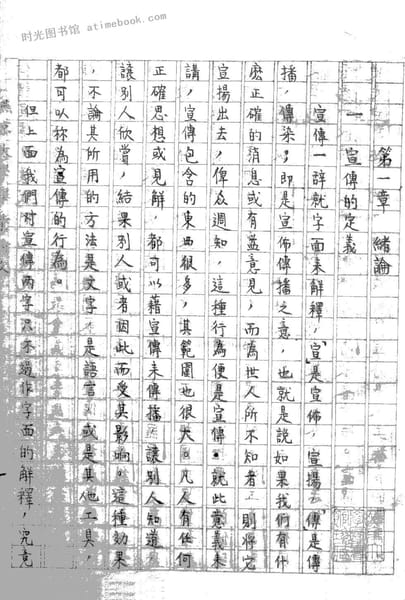 时光图书馆 atimebook.com
第一章 緒論
一 宣傳的定義
宣傳一辭就字面來解釋,「宣」是宣佈,宣揚,「傳」是傳
播,傳染;即是宣佈傳播之意,也就是說如果我們有什
麽正確的消息或有益意見,而為世人所不知者,則將它
宣揚出去,俾众週知,這種行為便是宣傳。就此意義來
講,宣傳包含的東西很多,其範圍也很大。凡人有任何
正確思想或見解,都可以藉宣傳來傳播,讓別人知道
讓別人欣賞,結果別人或者因此而受其影响。這種効果
,不論其所用的方法是文字,是語言,或是其他工具,
都可以称為宣傳的行為。
但上面我們對宣傳两字只不過作字面的解釋,究竟